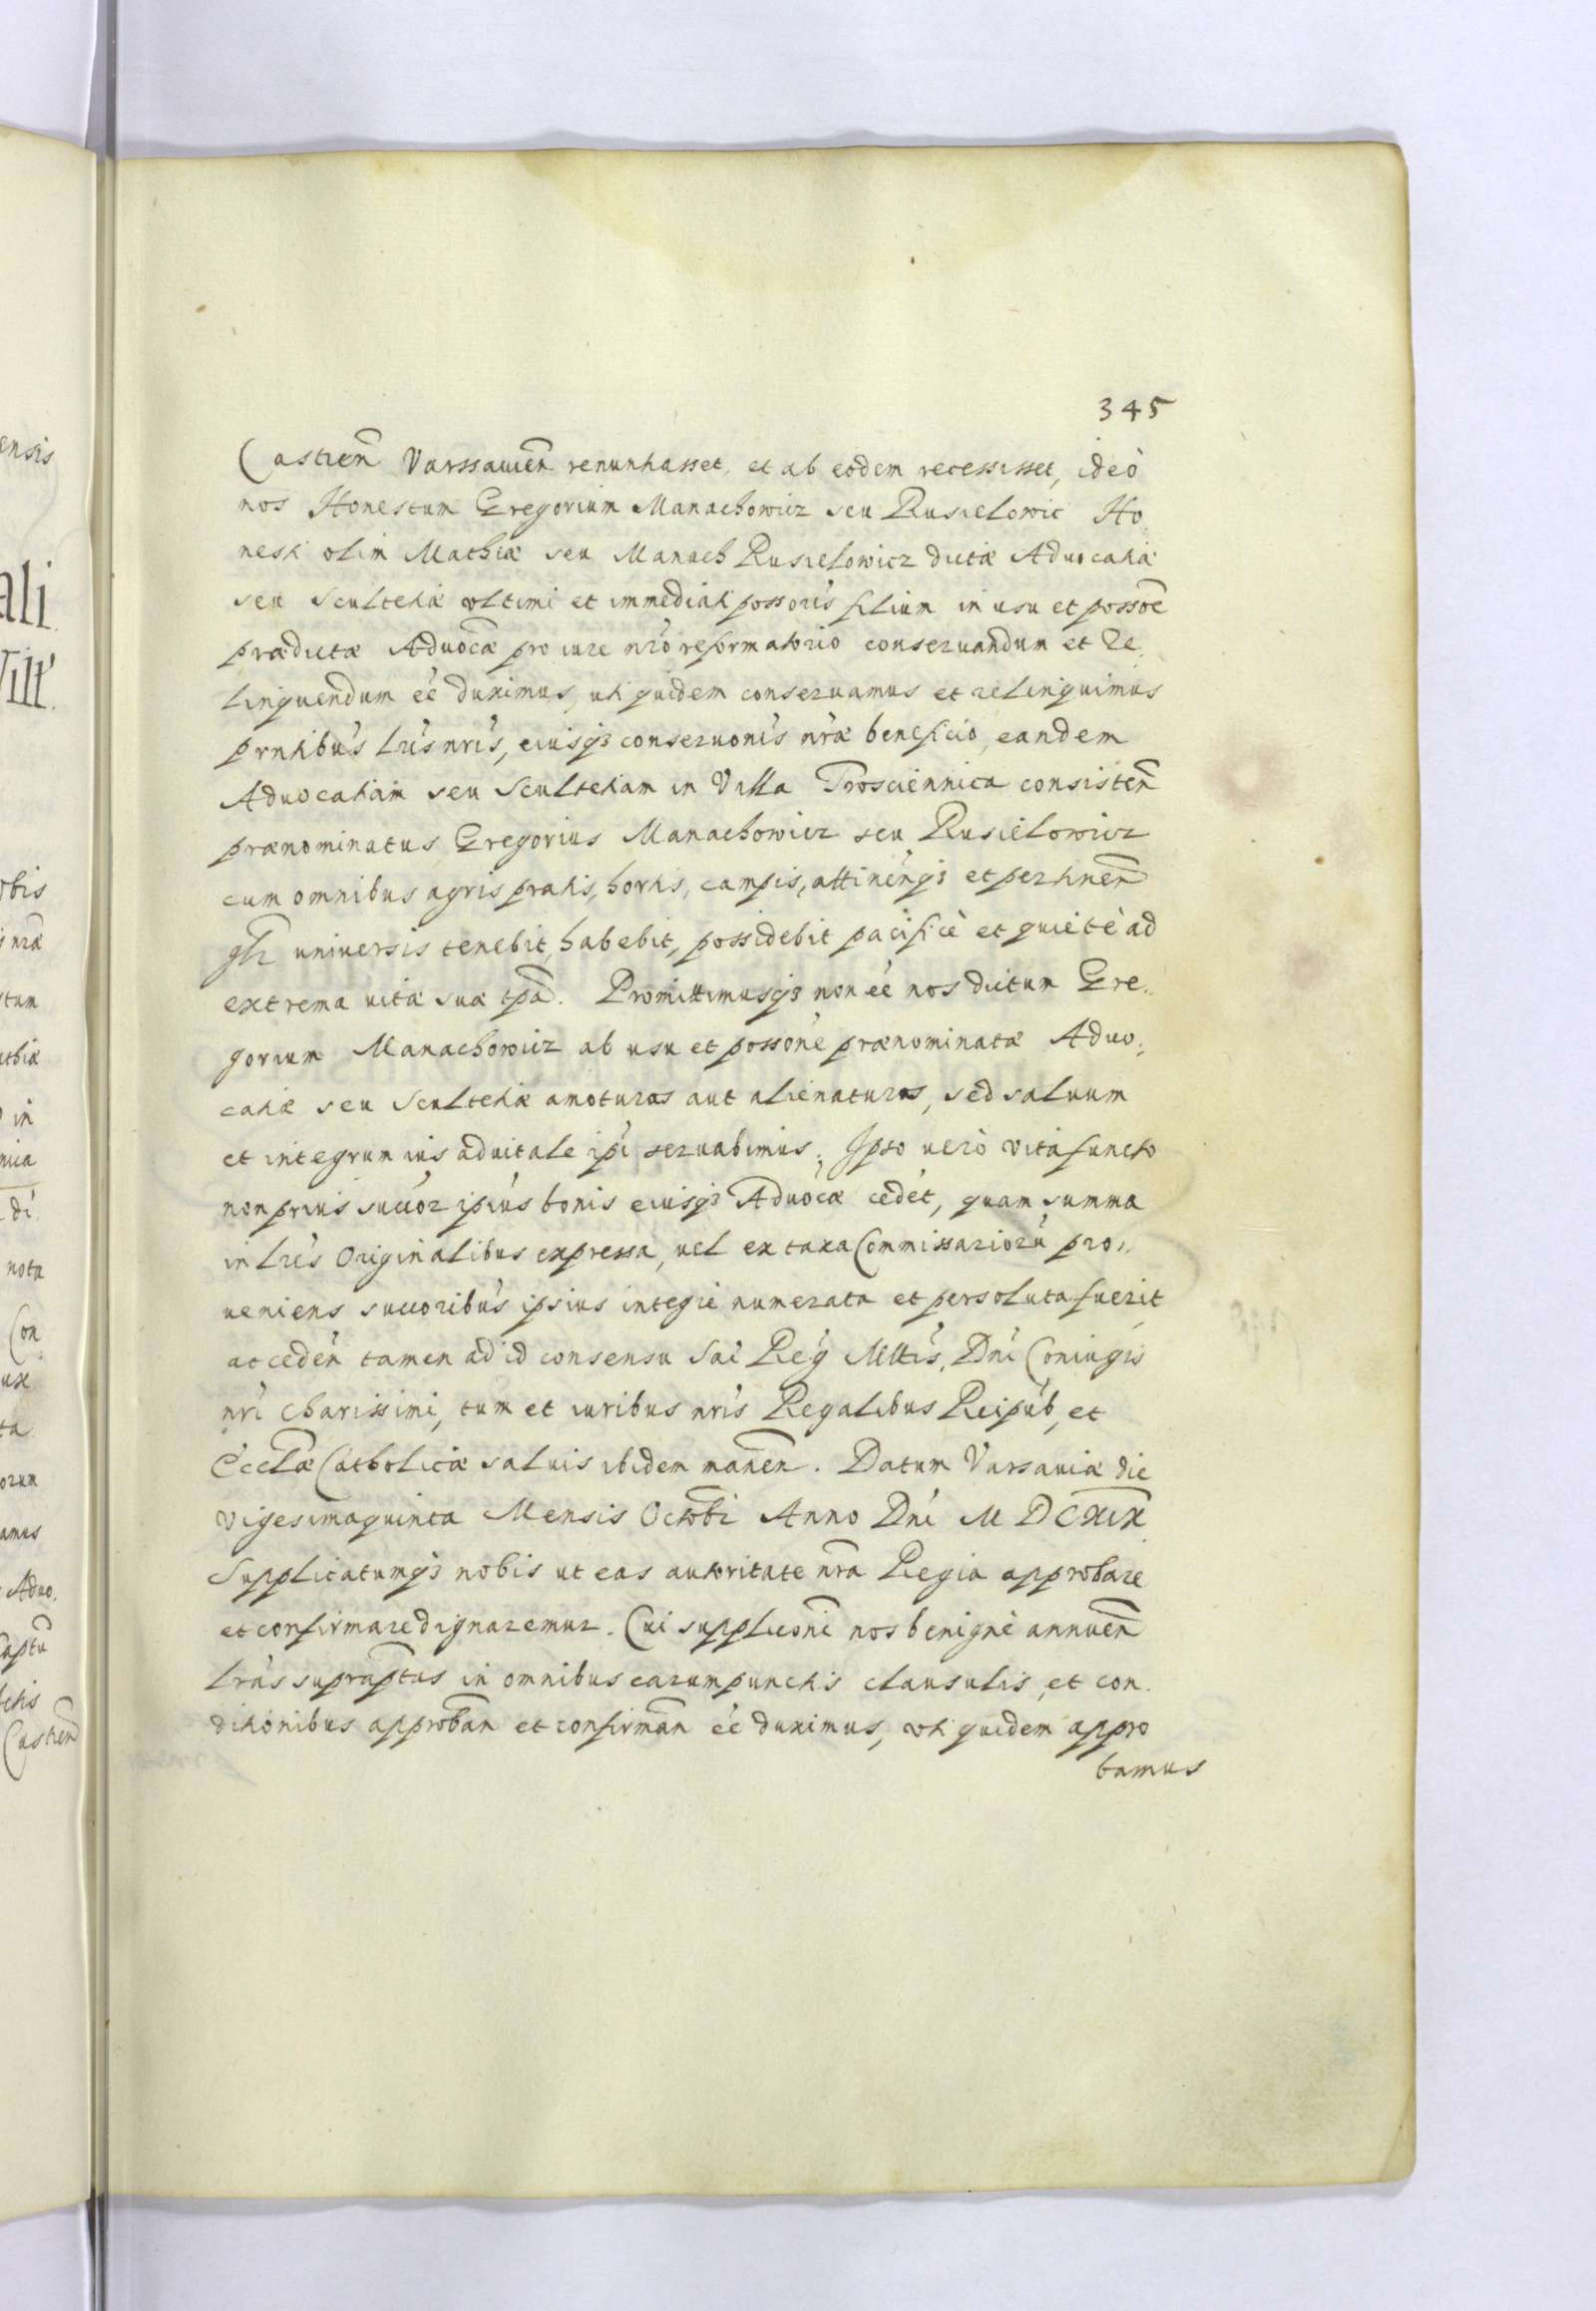 345
Castren̄ Varssauien̄ renuntiasset, et ab eodem recessisset, ideò
nos Honestum Gregorium Manachowicz seu Rusielowic Ho
nesti olim Mathiæ seu Manach Rusielowicz dictæ Aduocatiæ
seu Scultetiæ vltimi et immediati possoris filium in usu et possoē
prædictæ Aduocæ pro iure nro reformatorio conseruandum et re
linquendum eē duximus, uti quidem conseruamus et relinquimus
pñtibus lris nris, eiusq3 conseruonis nræ beneficio, eandem
Aduocatiam seu Scultetiam in Villa Trosciennica consisten̄
prænominatus Gregorius Manachowicz seu Rusielowicz
cum omnibus agris pratis, hortis, campis, attinen̄q3 et pertinen̄
universis tenebit, habebit, possidebit pacificè et quietè ad
extrema vitæ suæ tpa. Promittimusq3 non eē nos dictum Gre
gorium Manachowicz ab usu et possone prænominatæ Aduo
catiæ seu Scultetiæ amoturos aut alienaturos, sed saluum
et integrum ius aduitale ipi seruabimus. Ipso uerò vita functo
non prius succor ipius bonis eiusq3 Aduocæ cedet, quam summa
in lris Originalibus expressa, uel ex taxa Commissariorū pro
ueniens succoribus ipsius integrè numerata et persoluta fuerit
acceden̄ tamen ad id consensu Sac Reg Mttis, Dni Coniugis
nri charissimi, tum et iuribus nris Regalibus Reipub, et
Ecclæ Catholicæ saluis ibidem manen̄. Datum Varsauiæ die
vigesimaquinta Mensis Octobr Anno Dni M DCXIX
Supplicatumq3 nobis ut eas autoritate nra Regia approbare
et confirmare dignaremur. Cui supplicōni nos benignè annuen̄
lras supraptas in omnibus earum punctis clausulis, et con
ditionibus approban̄ et confirman̄ eē duximus, vti quidem appro
bamus